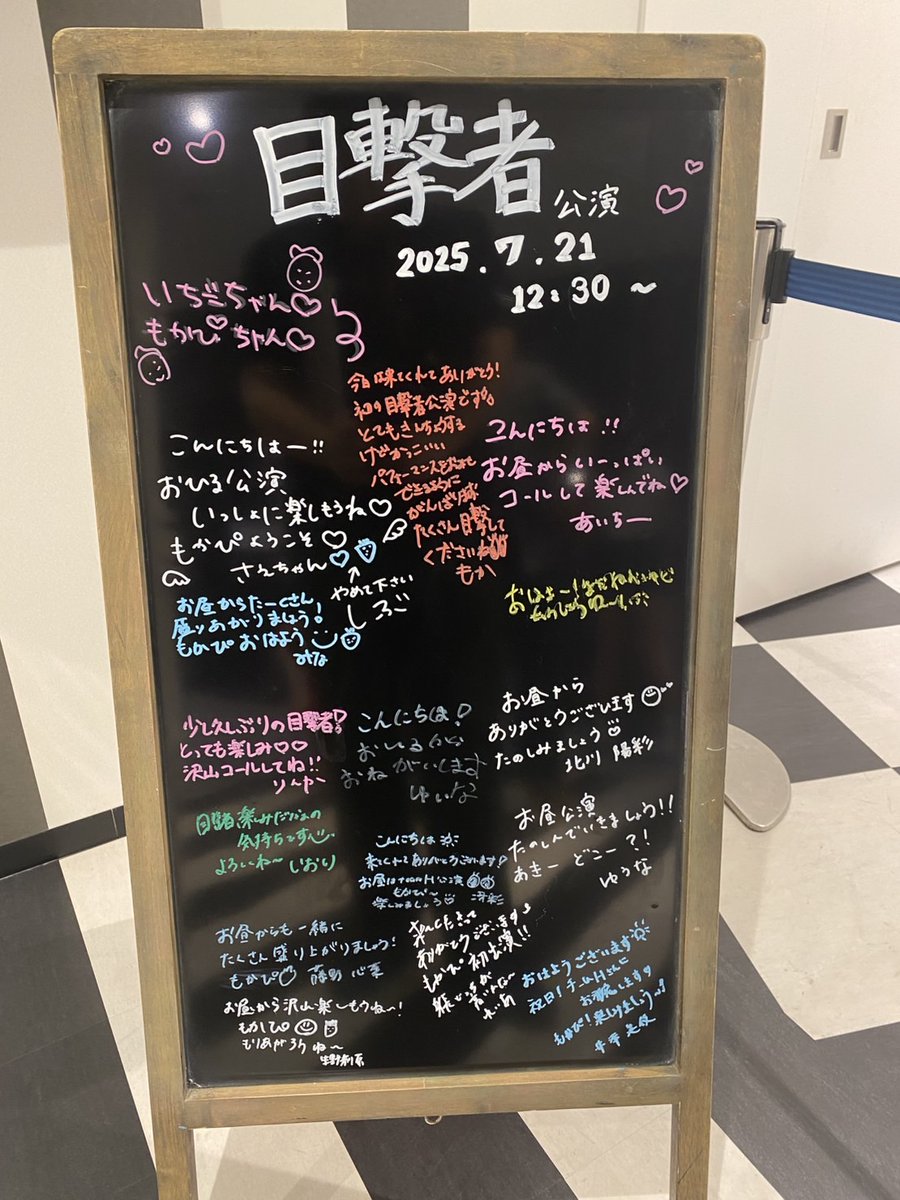 目撃者 公演
2025.7.21
12:30 ~
いちごちゃん♡
もかぴちゃん♡
今日は来てくれてありがとう!
初の目撃者公演です。
とてもきんちょうする
けどかっこいい
パフォーマンスをお
できるように
がんばります
たくさん目撃して
くださいね
もか
こんにちはー!!
おひる公演
いっしょに楽しもうね♡
もかぴようこそ♡
さえちゃん♡
↑
やめて下さい
しろご
こんにちは!!
お昼からいーっぱい
コールして楽しんでね♡
あいちー
お昼からたーくさん
盛りあがりましょう!
もかぴおはよう
みな
おはよー!
少し久しぶりの目撃者!
とっても楽しみ♡♡
沢山コールしてね!!
りーか
こんにちは!
おひるから
おねがいします
ゆいな
お昼から
ありがとうございます
たのしみましょう
北川 陽彩
目撃者楽しみだなぁの
気持ちです
よろしくね〜 いおり
こんにちは
来てくれてありがとうございます!
お昼はteamH公演
もかぴ〜
楽しみましょう 冴彩
お昼公演
たのしんでいきましょう!!
あきー どこー?!
ゆうな
お昼からも一緒に
たくさん盛り上がりましょう!
もかぴ♡ 藤野 心葉
来てくださって
ありがとうございます
もかぴ初出演!!
おはようございます
祝日!チームHさんに
お邪魔します
もかぴ!楽しみましょうっ
お昼から沢山楽しもうね〜!
もかぴ
もりあがろうね〜
生野莉奈